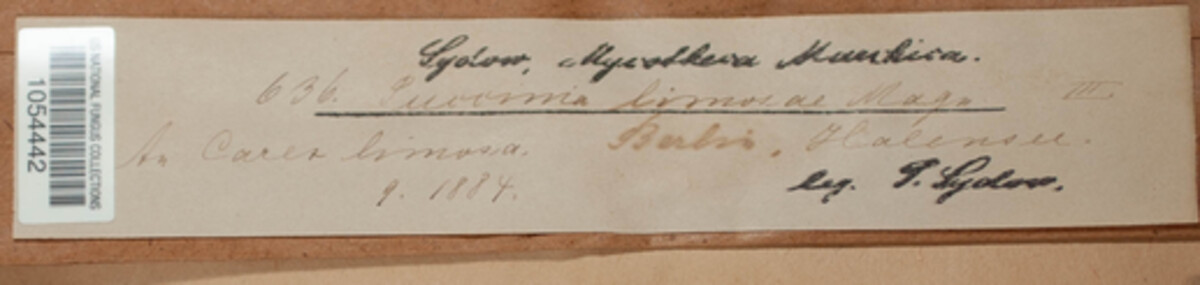 US NATIONAL FUNGUS COLLECTIONS
1054442
Sydow, Mycotheca Marchica.
636. Puccinia limosae Magn. III.
An Carex limosa. Berlin, Halensee.
9. 1884. leg. P. Sydow.